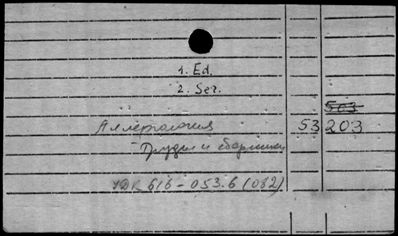 1. Ed.
2. Ser.
503
Аллергология 53 203
Труды и сборники
УДК 616-053.6 (062)